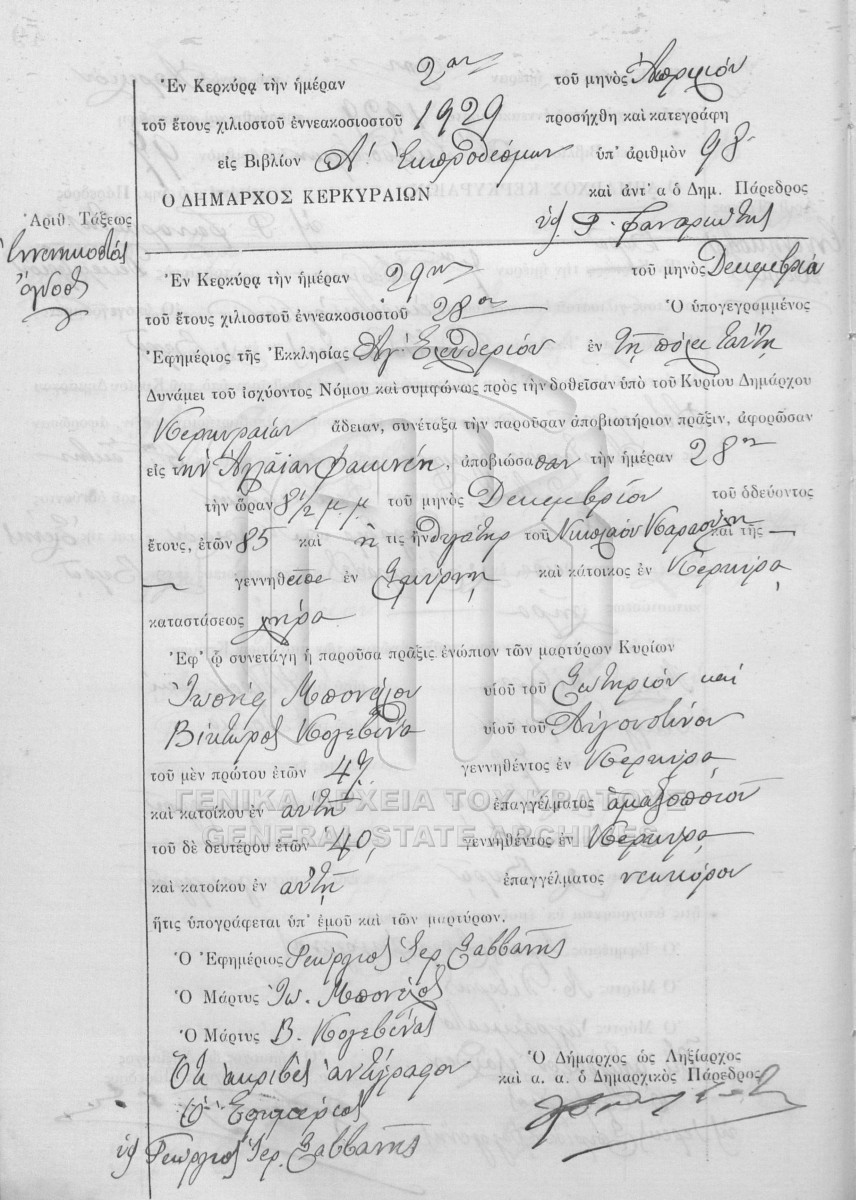 Ἐν Κερκύρᾳ τὴν ἡμέραν 2αν τοῦ μηνὸς Ἀπριλίου
τοῦ ἔτους χιλιοστοῦ ἐννεακοσιοστοῦ 1929 προσήχθη καὶ κατεγράφη
εἰς Βιβλίον Α' Ἐκπροθέσμων ὑπ' ἀριθμὸν 98
Ο ΔΗΜΑΡΧΟΣ ΚΕΡΚΥΡΑΙΩΝ καὶ ἀντ' α ὁ Δημ. Πάρεδρος
Φαναριώτης
Ἀριθ. Τάξεως
Ἐννενηκοστὸς
ὄγδοος
Ἐν Κερκύρᾳ τὴν ἡμέραν 29ην τοῦ μηνὸς Δεκεμβρίου
τοῦ ἔτους χιλιοστοῦ ἐννεακοσιοστοῦ 28ου Ὁ ὑπογεγραμμένος
Ἐφημέριος τῆς Ἐκκλησίας Ἁγ. Ἐλευθερίου ἐν τῇ πόλει ταύτῃ
Δυνάμει τοῦ ἰσχύοντος Νόμου καὶ συμφώνως πρὸς τὴν δοθεῖσαν ὑπὸ τοῦ Κυρίου Δημάρχου
Κερκυραίων ἄδειαν, συνέταξα τὴν παροῦσαν ἀποβιωτήριον πρᾶξιν, ἀφορῶσαν
εἰς τὴν Ἀγλαΐαν, ἀποβιώσασαν τὴν ἡμέραν 28ην
τὴν ὥραν 8 1/2 μ.μ. τοῦ μηνὸς Δεκεμβρίου τοῦ ὁδεύοντος
ἔτους, ἐτῶν 85 καὶ ἥτις ἦν θυγάτηρ τοῦ Νικολάου καὶ τῆς —
— γεννηθεῖσα ἐν Σμύρνῃ καὶ κάτοικος ἐν Κερκύρᾳ
καταστάσεως χήρα
Ἐφ' ᾧ συνετάγη ἡ παροῦσα πρᾶξις ἐνώπιον τῶν μαρτύρων Κυρίων
Ἰωσὴφ Μπονέλου υἱοῦ τοῦ Σωτηρίου καὶ
Βίκτωρος Κολεβίνα υἱοῦ τοῦ Αὐγουστίνου
τοῦ μὲν πρώτου ἐτῶν 47 γεννηθέντος ἐν Κερκύρᾳ
καὶ κατοίκου ἐν αὐτῇ ἐπαγγέλματος ἁμαξοποιοῦ
τοῦ δὲ δευτέρου ἐτῶν 40 γεννηθέντος ἐν Κερκύρᾳ
καὶ κατοίκου ἐν αὐτῇ ἐπαγγέλματος νεωκόρου
ἥτις ὑπογράφεται ὑπ' ἐμοῦ καὶ τῶν μαρτύρων.
Ὁ Ἐφημέριος Γεώργιος Ἱερ. Σαββανῆς
Ὁ Μάρτυς Ἰω. Μπονέλος
Ὁ Μάρτυς Β. Κολεβίνας
Ὅτι ἀκριβὲς ἀντίγραφον
Ὁ Ἐφημέριος
Γεώργιος Ἱερ. Σαββανῆς
Ὁ Δήμαρχος ὡς Ληξίαρχος
καὶ α. α. ὁ Δημαρχικὸς Πάρεδρος
ΓΕΝΙΚΑ ΑΡΧΕΙΑ ΤΟΥ ΚΡΑΤΟΥΣ
GENERAL STATE ARCHIVES